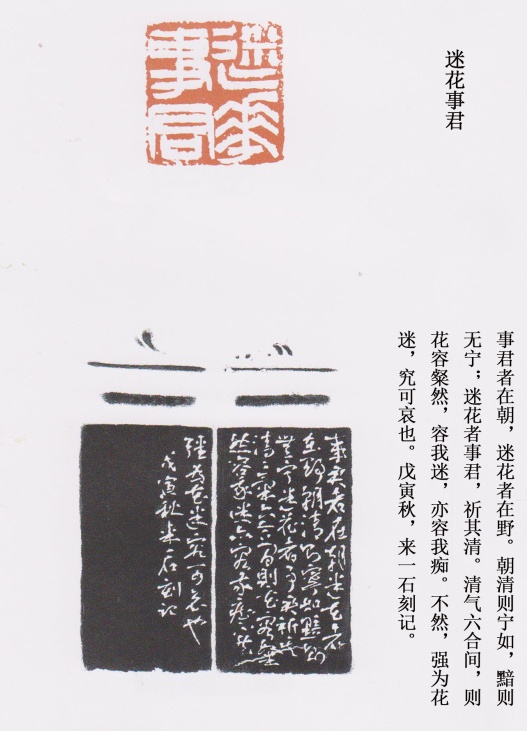 迷花事君
迷花事君
事君者在朝，迷花者在野。朝清则宁如，黯则
无宁；迷花者事君，祈其清。清气六合间，则
花容粲然，容我迷，亦容我痴。不然，强为花
迷，究可哀也。戊寅秋，来一石刻记。
事君者在朝迷花者
在野朝清则宁如黯则
无宁迷花者事君祈其
清清气六合间则花容粲
然容我迷亦容我痴不然
强为花迷究可哀也
戊寅秋来一石刻记